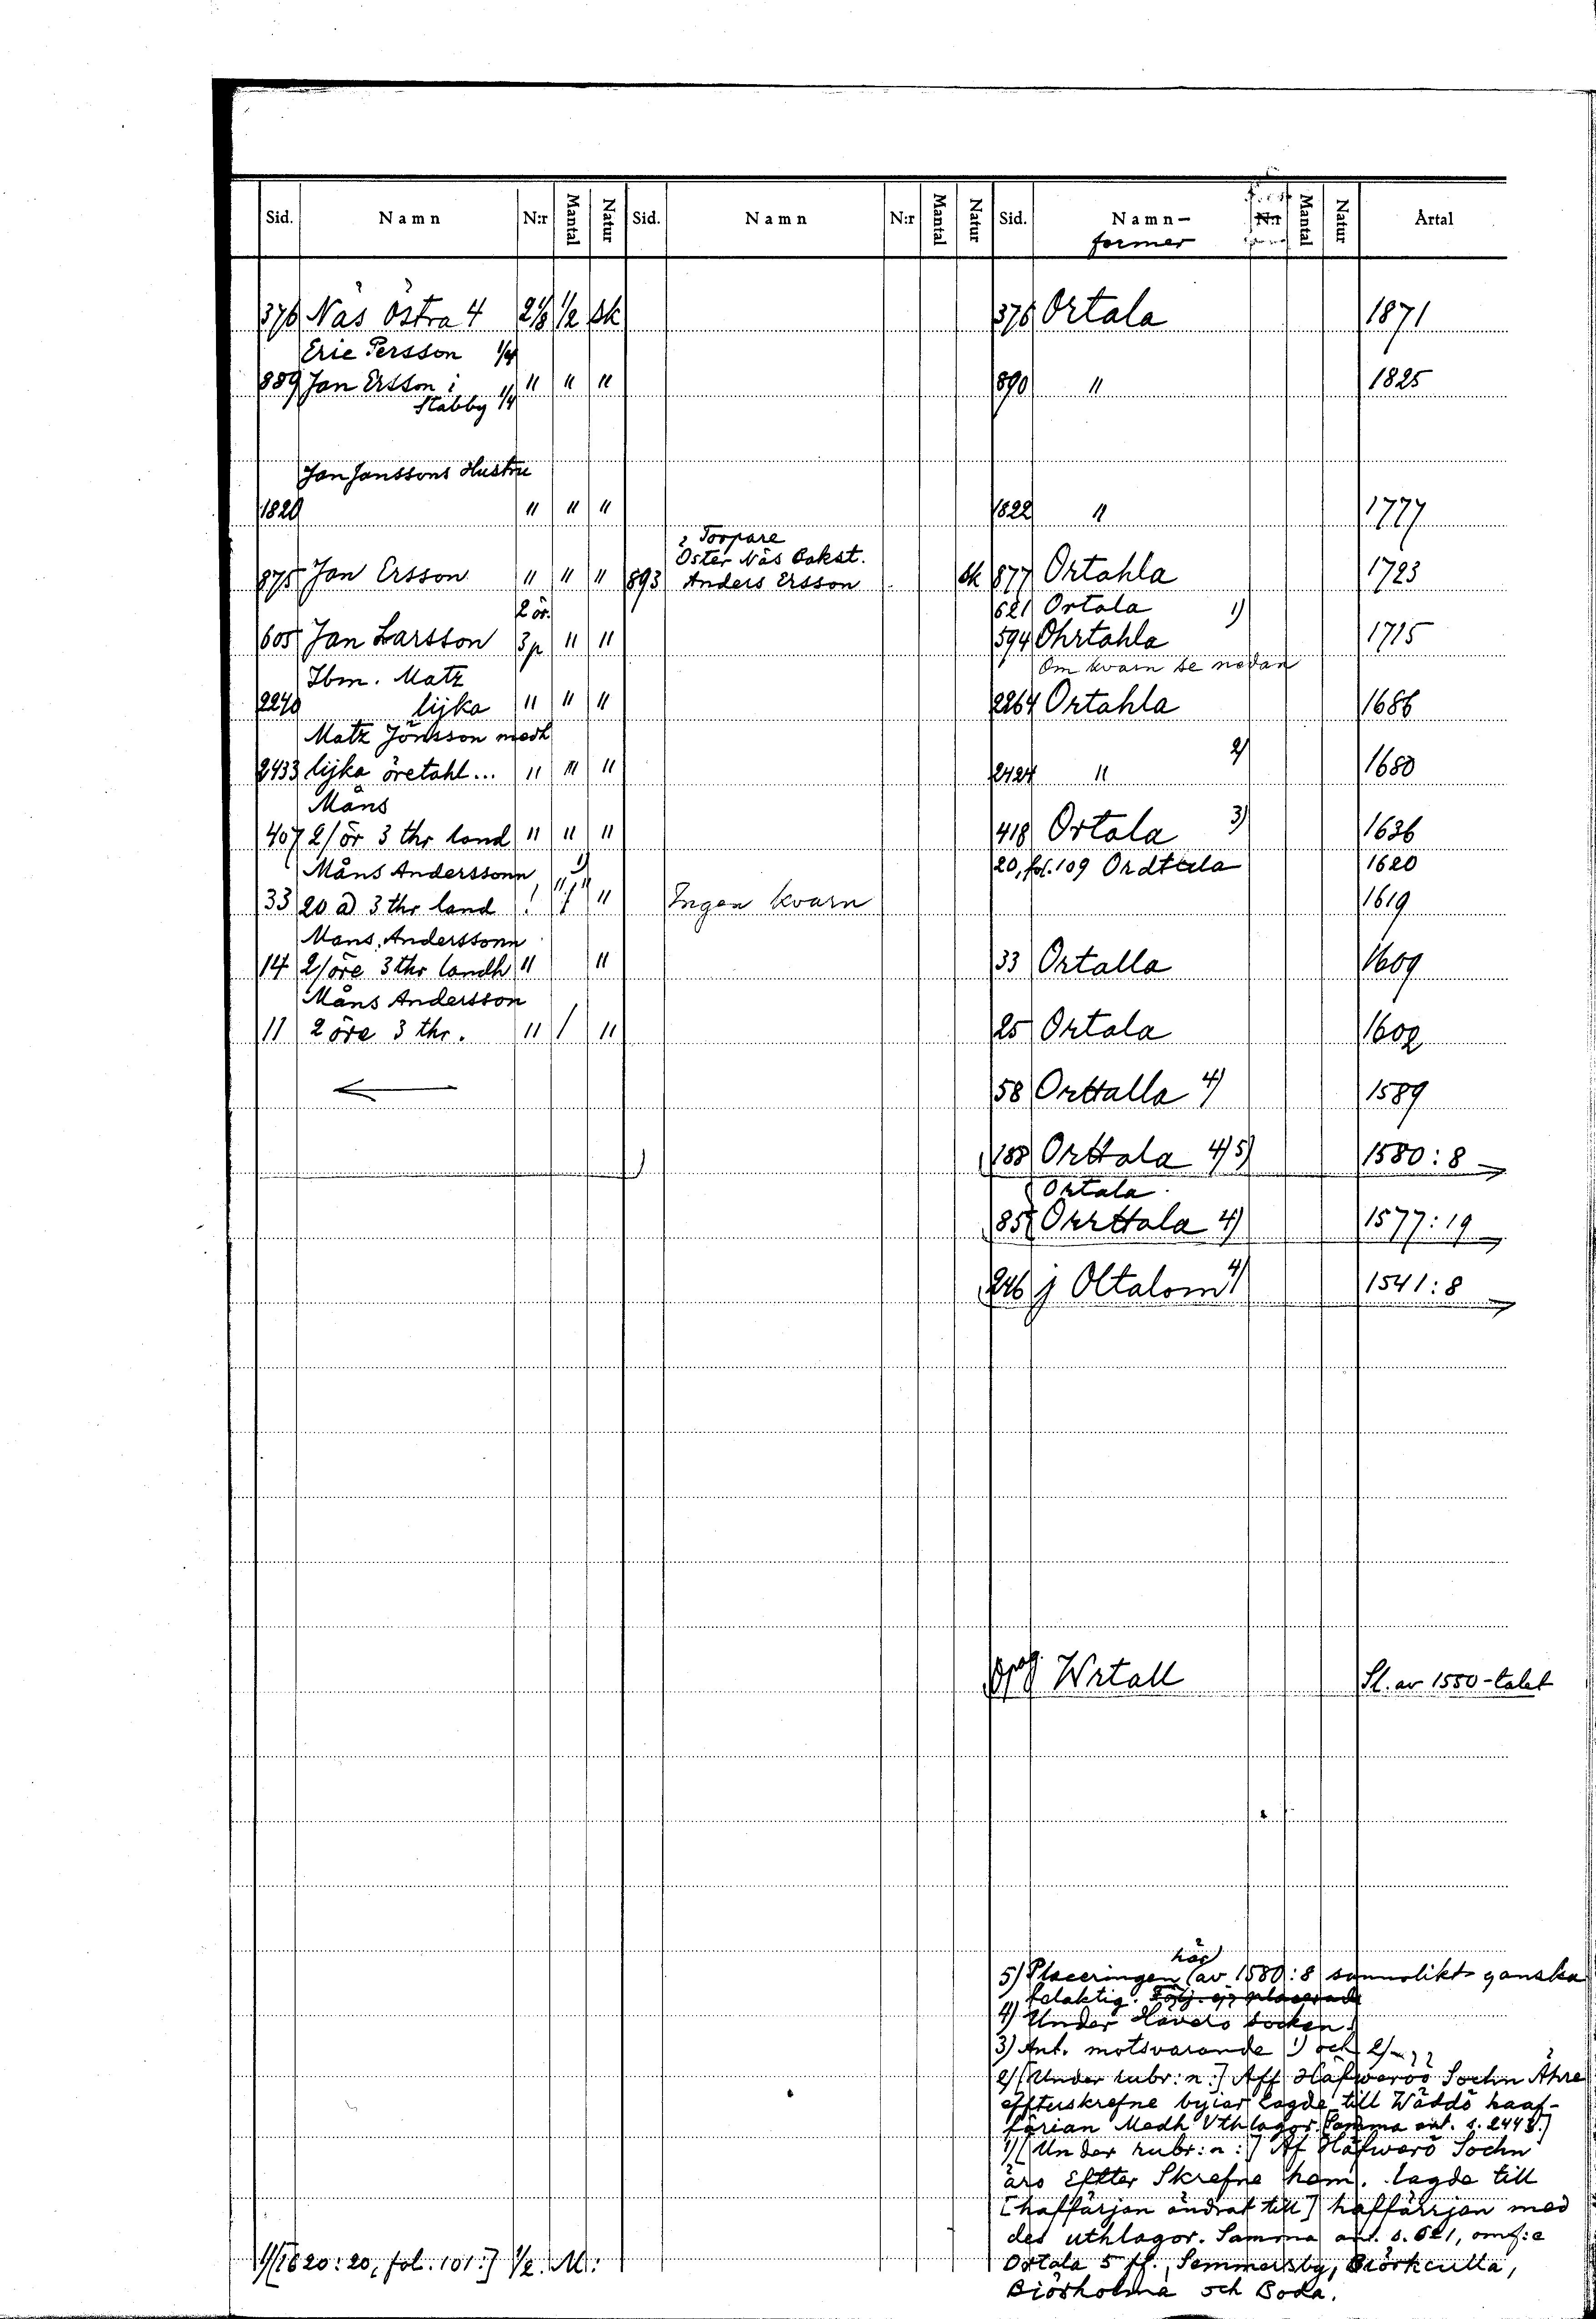 Sid. Namn N:r Mantal Natur Sid. Namn N:r Mantal Natur Sid. Namn- N:r Mantal Natur Årtal
former
376 Näs Östra 4 2 1/8 1/2 sk 376 Ortala 1871
Eric Persson 1/4
889 Jan Ersson i " " " 890 " 1825
Stabby 1/4
Jan Janssons Hustru
1820 " " " 1822 " 1777
Torpare
Öster Näs Bakst.
875 Jan Ersson " " " 893 Anders Ersson sk 877 Ortahla 1723
2 ör. 621 Ortala 1)
605 Jan Larsson 3p " " 594 Ohrtahla 1715
Om kvarn se nedan
Ibm. Matz
2240 lijka " " " 2264 Ortahla 1686
Matz Jönsson medh
2433 lijka öretahl... " " " 2424 " 2) 1680
Måns
407 2/ör 3 thr land " " " 418 Ortala 3) 1636
Måns Anderssonn 1) 20, fol. 109 Ordttula 1620
33 20 a) 3 thr land " " Ingen kvarn 1619
Mans. Anderssonn
14 2/öre 3 thr landh " " 33 Ortalla 1609
Måns Andersson
11 2 öre 3 thr. " / " 25 Ortala 1602
58 Orttalla 4) 1589
188 Orttala 4) 5) 1580:8
Ortala
85 Orrttala 4) 1577:19
246 j Oltalom 4) 1541:8
opag. Wrtall Sl. av 1550-talet
här
5) Placeringen av 1580:8 sannolikt ganska
felaktig. Följ. ej placerade
4) Under Häverö socken.
3) Ant. motsvarande 1) och 2)
2) [Under rubr:n:] Aff Häfweröö Sochn Ähre
effterskrefne byiar lagde till Wäddö haaf-
färian Medh Vthlagor. Samma ant. s. 2443.]
1) [Under rubr:n:] Af Häfwerö Sochn
äro Effter Skrefne hem. lagde till
[haffärjan ändrat till] haffärrjan med
des uthlagor. Samma ant. s. 621, omf:a
Ortala 5 ff., Semmersby, Biörkculla,
Biörholma och Boda.
1) [1620:20, fol. 101:] 1/2. M: